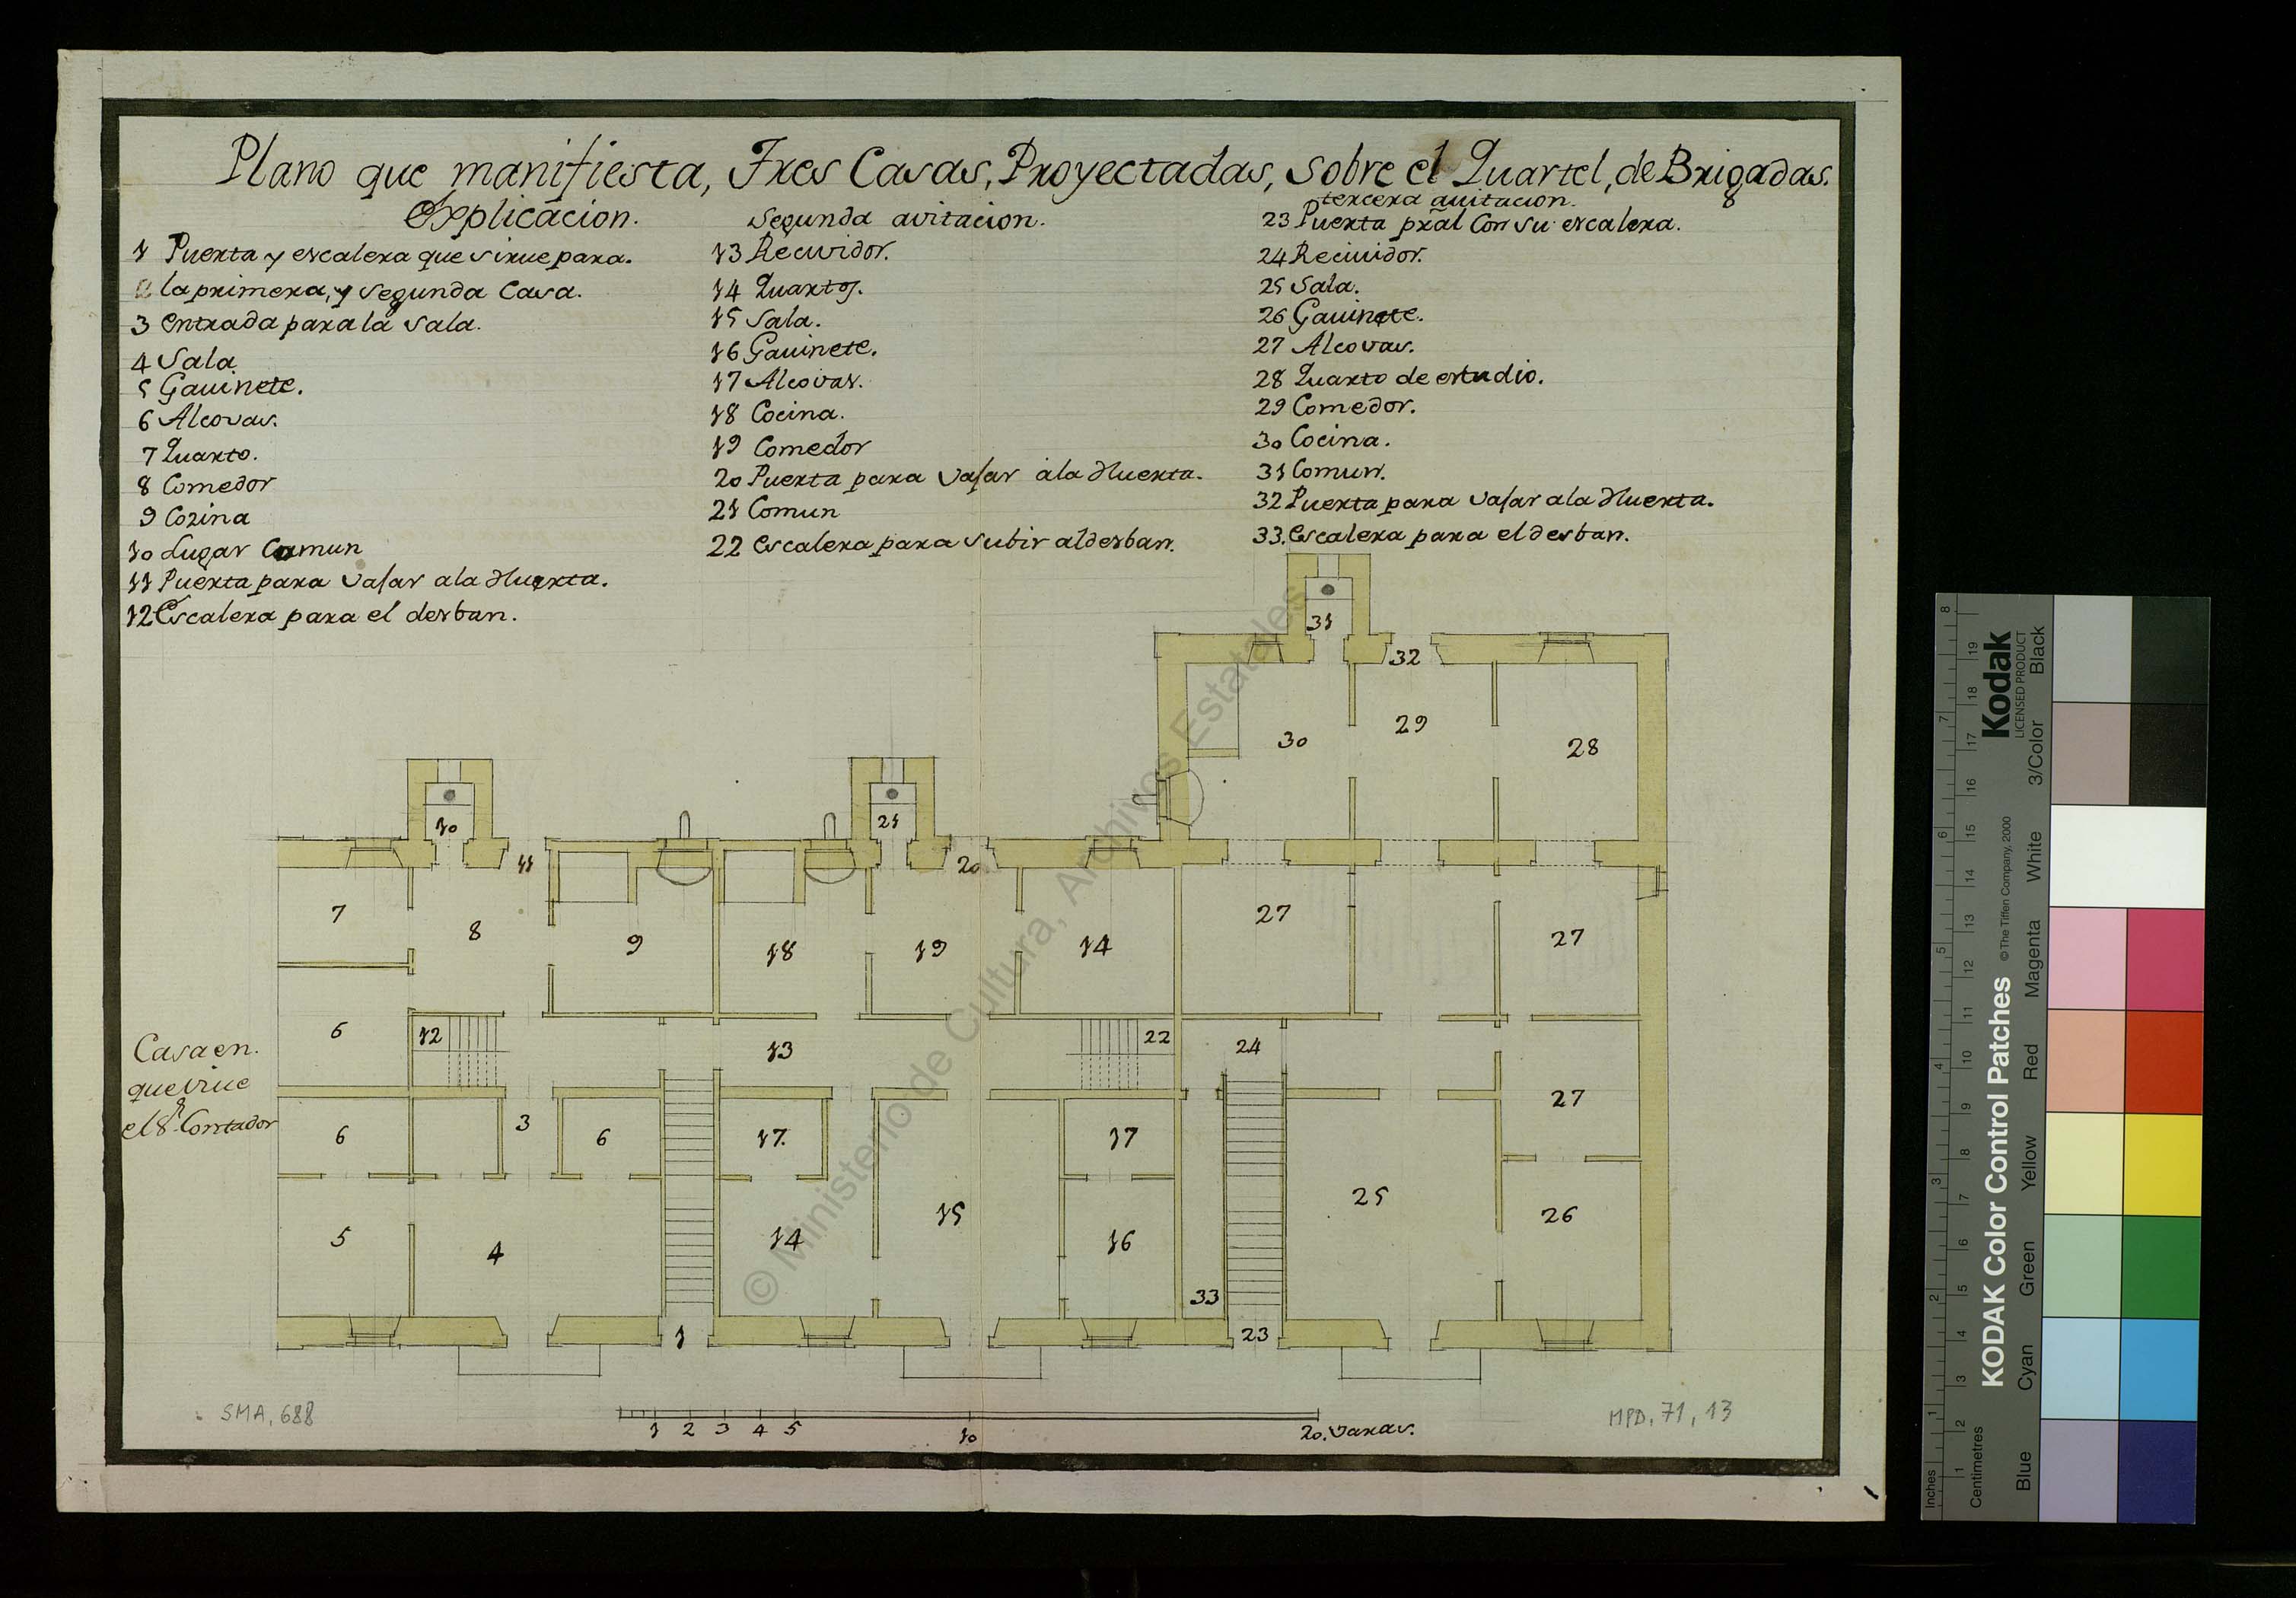 Plano que manifiesta, Tres Casas, Proyectadas, sobre el Quartel, de Brigadas.
Explicacion.
1 Puerta y escalera que sirue para.
2 la primera, y segunda Casa.
3 entrada para la sala.
4 Sala
5 Gauinete.
6 Alcovas.
7 Quarto.
8 Comedor
9 Cozina
10 Lugar Comun
11 Puerta para vajar ala Huerta.
12 Escalera para el desban.
segunda avitacion.
13 Recividor.
14 Quartos.
15 Sala.
16 Gauinete.
17 Alcovas.
18 Cocina.
19 Comedor
20 Puerta para vajar ala Huerta.
21 Comun
22 Escalera para subir al desban.
tercera auitacion.
23 Puerta pral con su escalera.
24 Reciuidor.
25 Sala.
26 Gauinete.
27 Alcovas.
28 Quarto de estudio.
29 Comedor.
30 Cocina.
31 Comun.
32 Puerta para vajar ala Huerta.
33. Escalera para el desban.
31
32
30
29
28
10
21
11
20
7
8
9
18
19
14
27
27
6
12
13
22
24
27
6
3
6
17.
17
5
4
14
15
16
25
26
33
1
23
Casa en.
que viue
el Sr. Contador
1 2 3 4 5 10 20. varas.
SMA, 688
MPD, 71, 13
© Ministerio de Cultura, Archivos Estatales
Kodak
LICENSED PRODUCT
KODAK Color Control Patches
© The Tiffen Company, 2000
Inches
1 2 3 4 5 6 7 8
Centimetres
1 2 3 4 5 6 7 8 9 10 11 12 13 14 15 16 17 18 19
Blue
Cyan
Green
Yellow
Red
Magenta
White
3/Color
Black